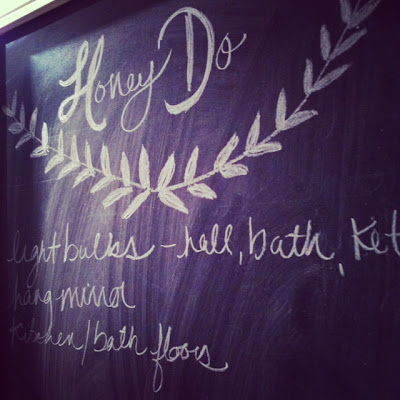 Honey Do
light bulbs - hall, bath,
hang
Kitchen/bath floors